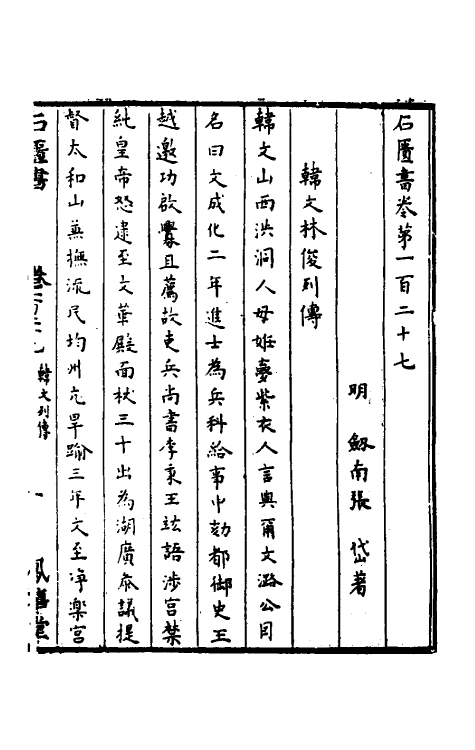 石匱書卷第一百二十七
明 劒南張 岱著
韓文林俊列傳
韓文山西洪洞人母姙夢紫衣人言與爾文潞公因
名曰文成化二年進士為兵科給事中劾都御史王
越邀功啟釁且薦故吏兵尚書李秉王竑語涉宮禁
純皇帝怒逮至文華殿面杖三十出為湖廣叅議提
督太和山兼撫流民均州亢旱踰三年文至淨樂宮
石匱書 卷 韓文列傳 一 鳳嬉堂